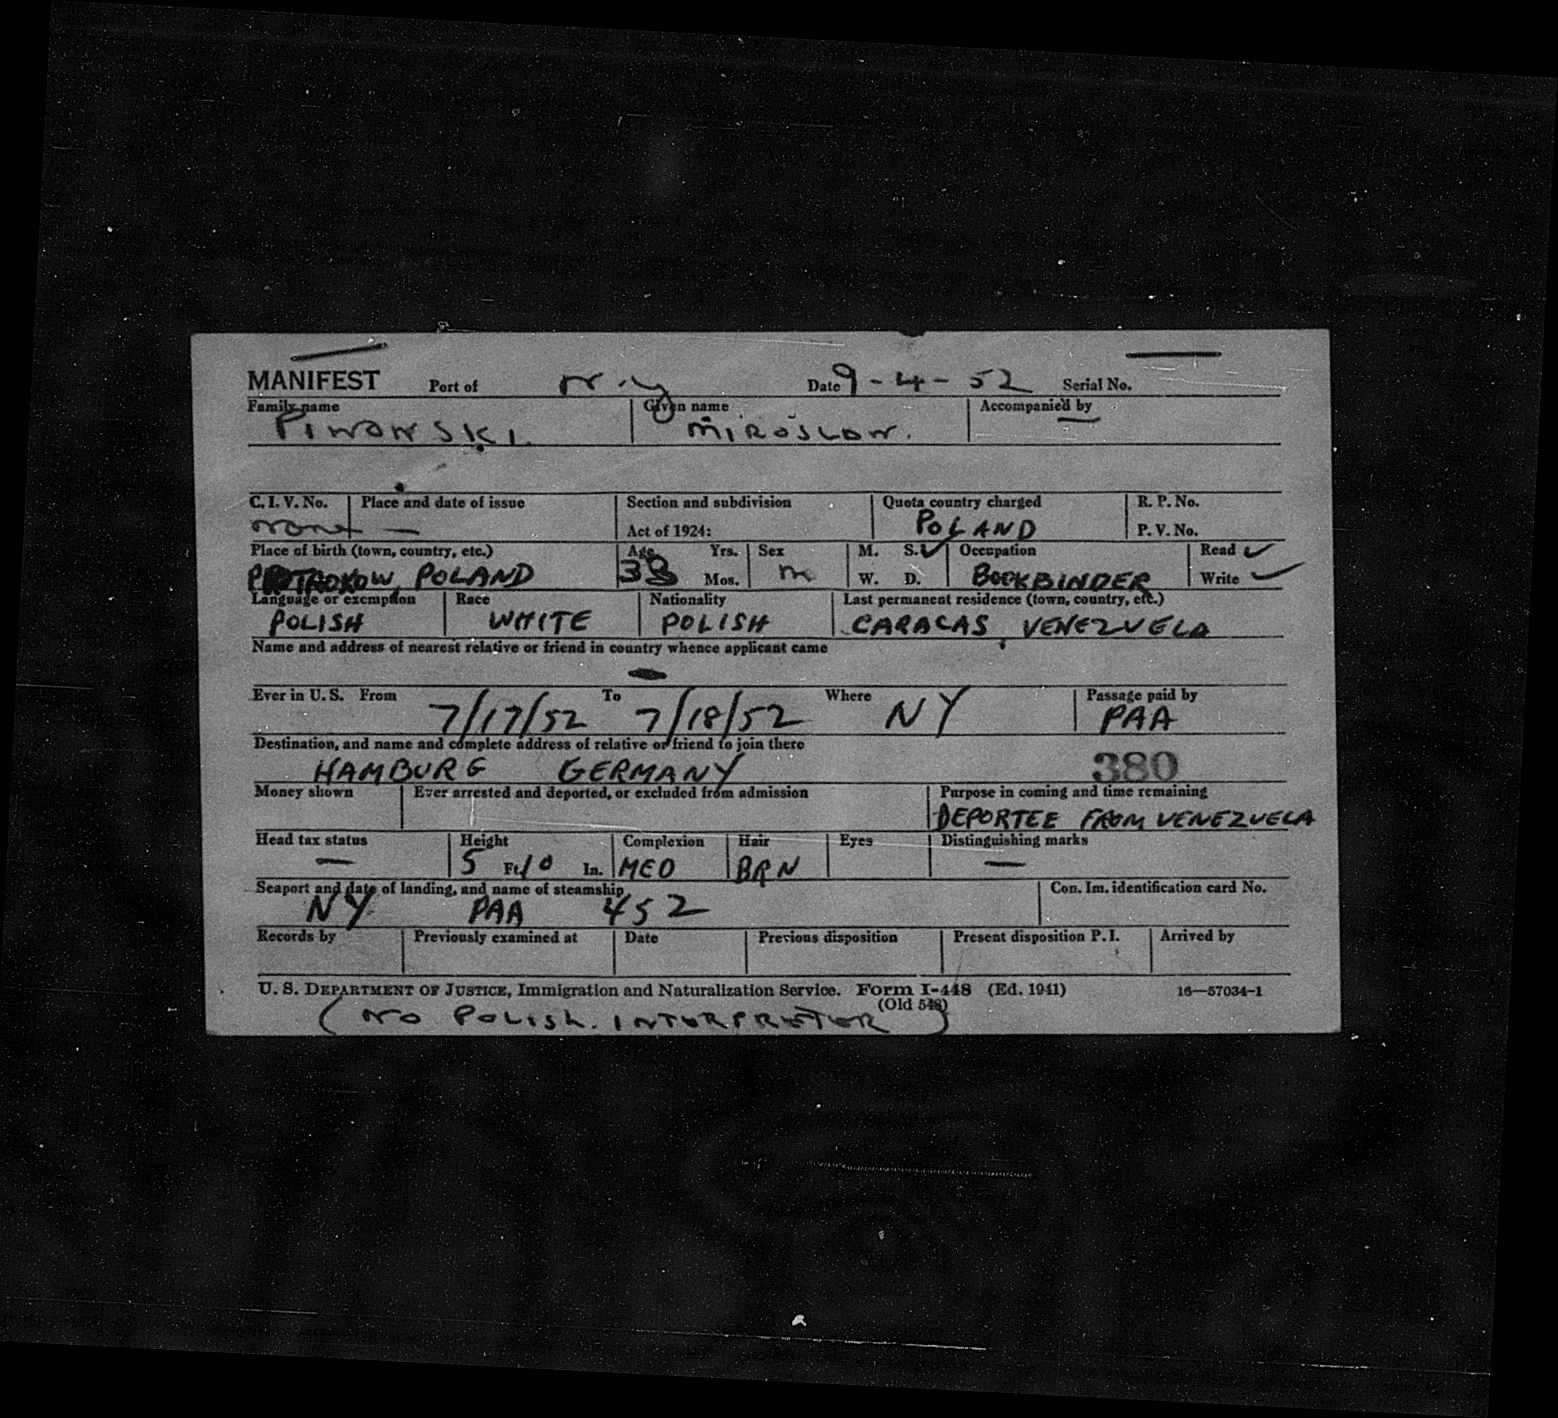 MANIFEST Port of N.Y Date 9-4-52 Serial No.
Family name Given name Accompanied by
PIWOWSKI. MIROSLOW. —
C. I. V. No. Place and date of issue Section and subdivision Quota country charged R. P. No.
none — Act of 1924: POLAND P. V. No.
Place of birth (town, country, etc.) Age Yrs. Sex M. S. ✓ Occupation Read ✓
POLAND 38 Mos. m W. D. BOOKBINDER Write ✓
Language or exemption Race Nationality Last permanent residence (town, country, etc.)
POLISH WHITE POLISH CARACAS, VENEZUELA
Name and address of nearest relative or friend in country whence applicant came
—
Ever in U. S. From 7/17/52 To 7/18/52 Where NY Passage paid by
PAA
Destination, and name and complete address of relative or friend to join there
HAMBURG GERMANY 380
Money shown Ever arrested and deported, or excluded from admission Purpose in coming and time remaining
DEPORTEE FROM VENEZUELA
Head tax status Height Complexion Hair Eyes Distinguishing marks
— 5 Ft. 10 In. MED BRN —
Seaport and date of landing, and name of steamship Con. Im. identification card No.
NY PAA 452
Records by Previously examined at Date Previous disposition Present disposition P. I. Arrived by
U. S. DEPARTMENT OF JUSTICE, Immigration and Naturalization Service. Form I-448 (Ed. 1941) 16—57034-1
(Old 548)
(NO POLISH. INTERPRETER)